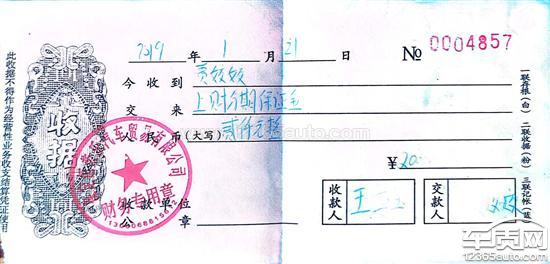 2019 年 1 月 21 日 No 0004857
今 收 到
交 来 上财分期保证金
人 民 币 (大写) 贰仟元整
¥20
收 款 单 位
公 章
收款人 王
交款人
收据
此收据不得作为经营性业务收支结算凭证使用
一联存根(白) 二联收据(粉) 三联记帐(蓝)
汽车贸易有限公司
财务专用章
车质网
12365auto.com